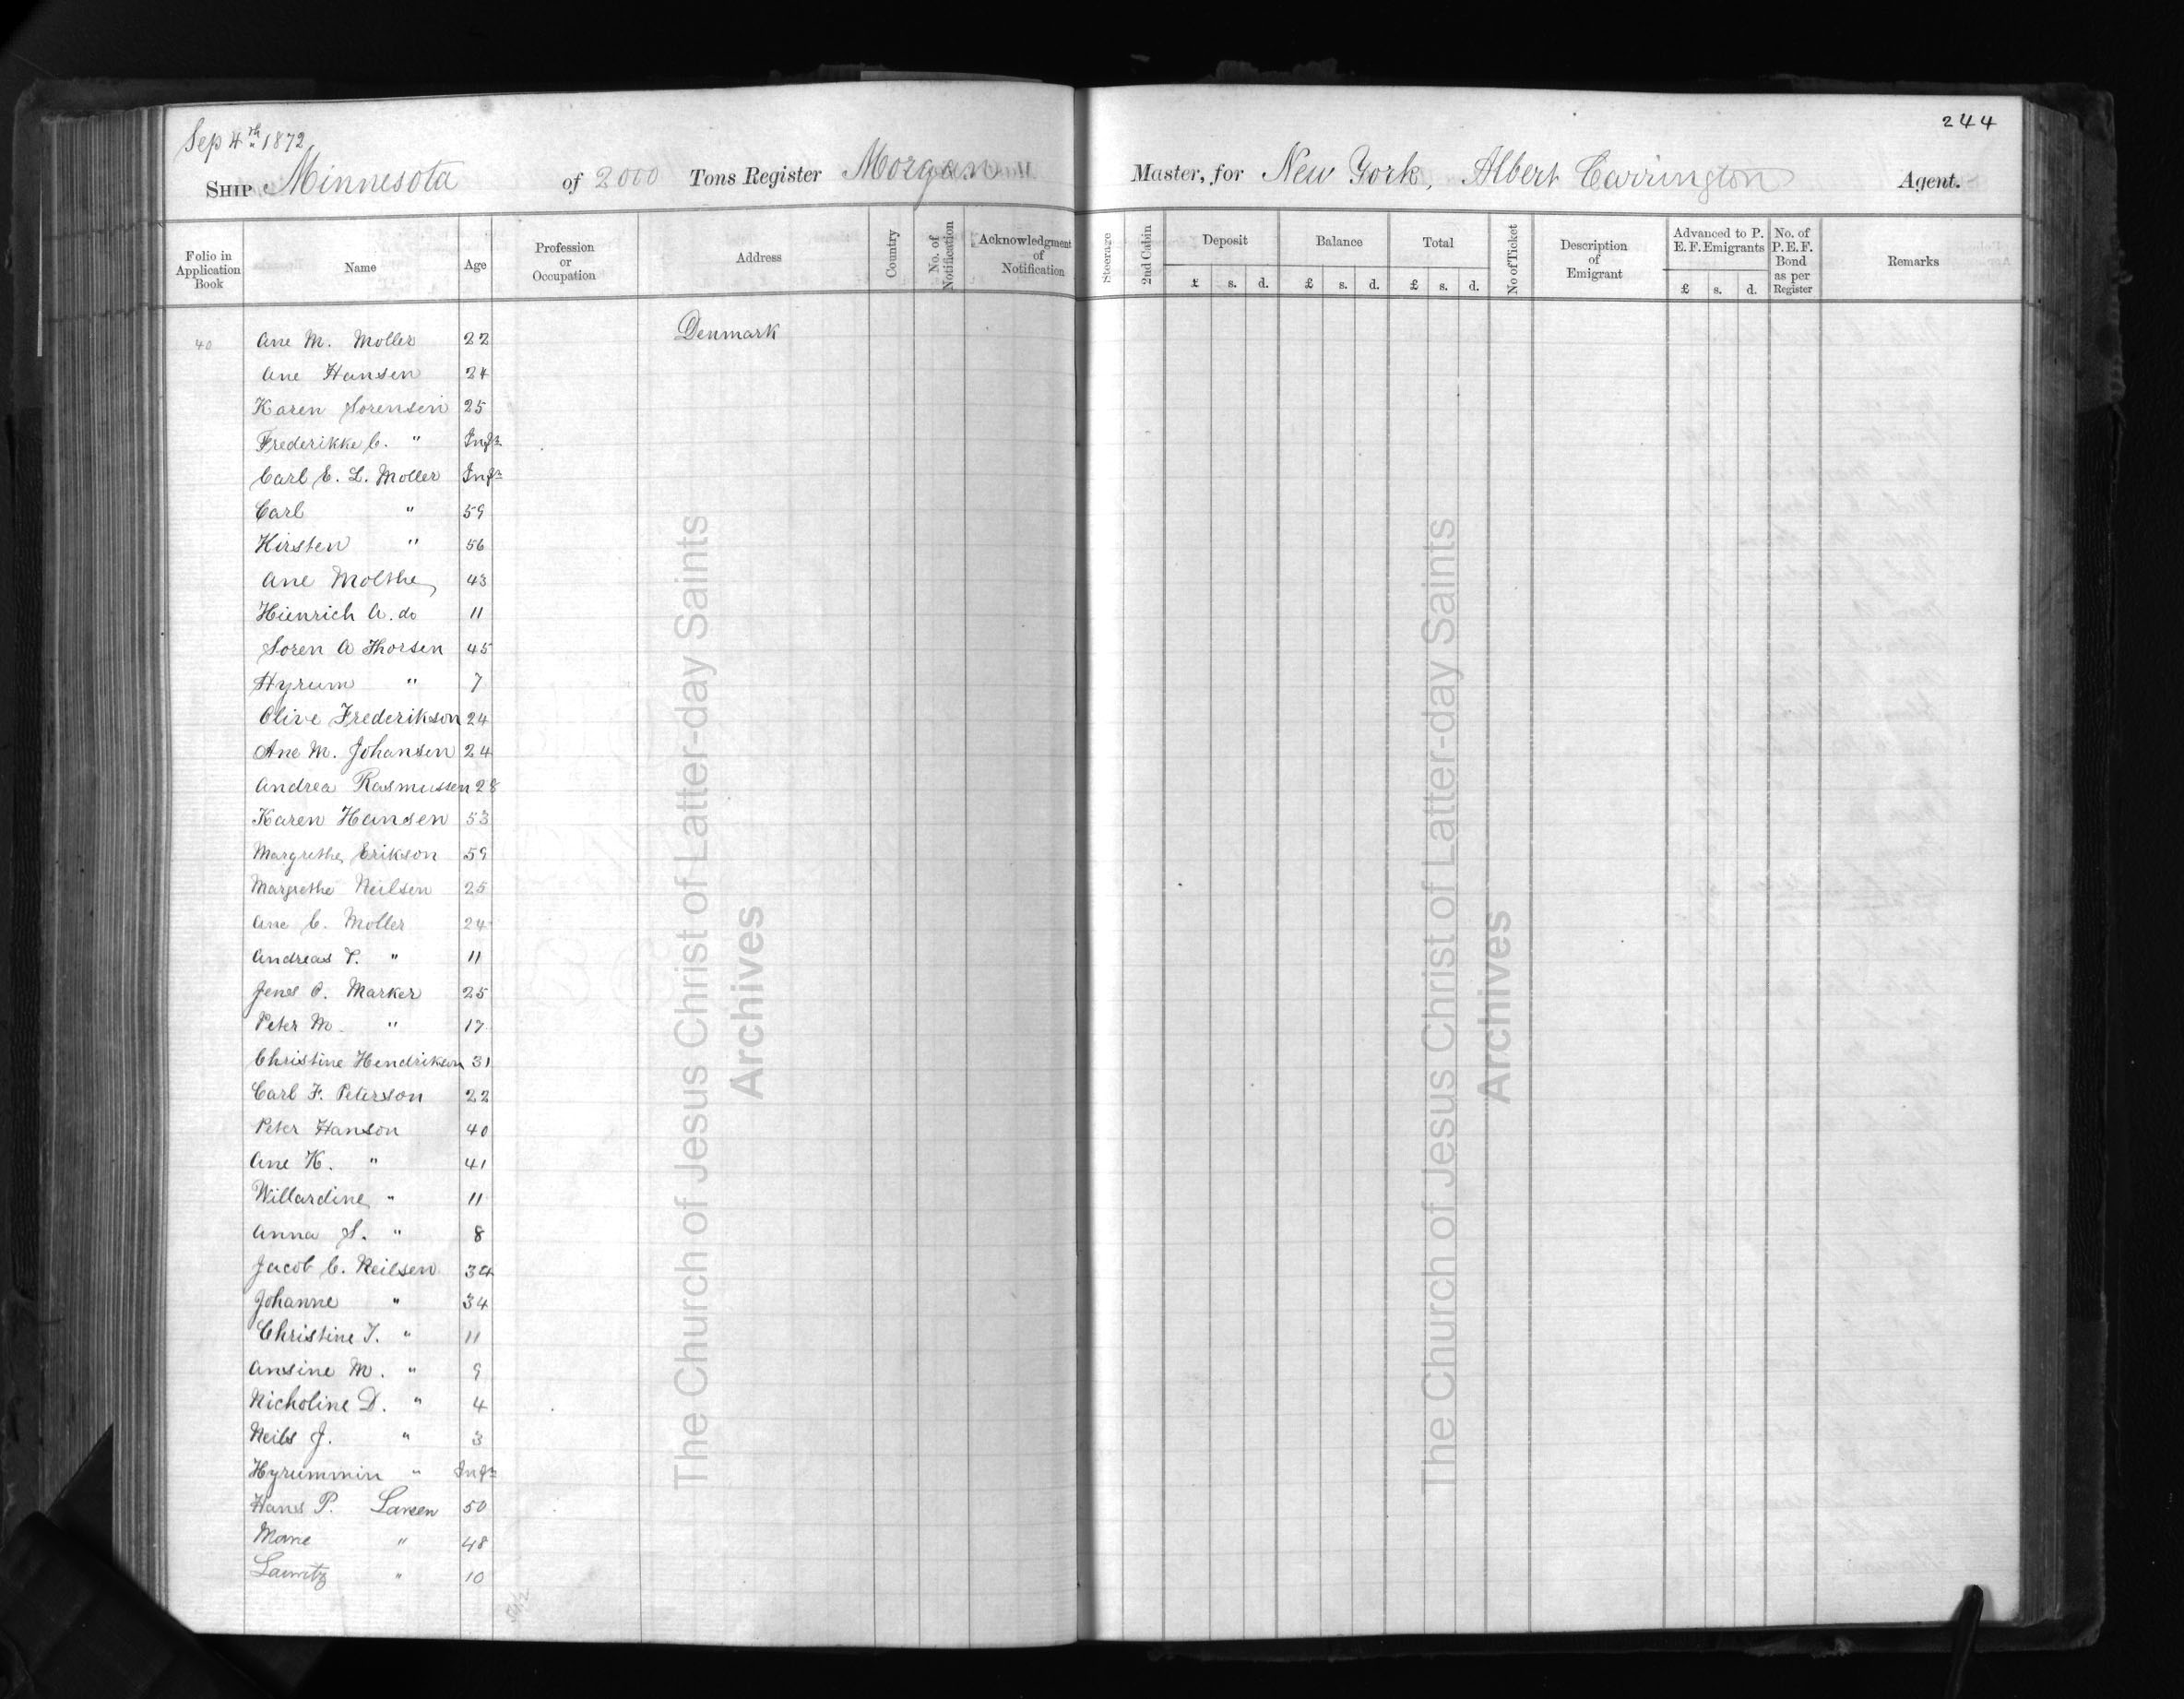 244
Sep 4th 1872
Ship Minnesota of 2000 Tons Register Morgan Master, for New York, Albert Carrington Agent.
Folio in Application Book Name Age Profession or Occupation Address Country No. of Notification Acknowledgment of Notification Steerage 2nd Cabin Deposit Balance Total No of Ticket Description of Emigrant Advanced to P. E. F. Emigrants No. of P. E. F. Bond as per Register Remarks
£ s. d. £ s. d. £ s. d. £ s. d.
40 Ane M. Moller 22 Denmark
Ane Hansen 24
Karen Sorensen 25
Frederikke C. " Inft
Carl E. L. Moller Inft
Carl " 59
Kirsten " 56
Ane Molthe 43
Hienrich A. do 11
Soren A Thorsen 45
Hyrum " 7
Olive Frederikson 24
Ane M. Johansen 24
Andrea Rasmussen 28
Karen Hansen 53
Margrethe Erikson 59
Margrethe Neilsen 25
Ane C. Moller 24
Andreas T. " 11
Jens O. Marker 25
Peter M. " 17
Christine Hendrikson 31
Carl F. Peterson 22
Peter Hanson 40
Ane K. " 41
Willardine " 11
Anna S. " 8
Jacob C. Neilsen 34
Johanne " 34
Christine J. " 11
Ansine M. " 9
Nicholine D. " 4
Neils J. " 3
Hyrummin " Inft
Hans P. Larsen 50
Marie " 48
Lauritz " 10
The Church of Jesus Christ of Latter-day Saints
Archives
The Church of Jesus Christ of Latter-day Saints
Archives